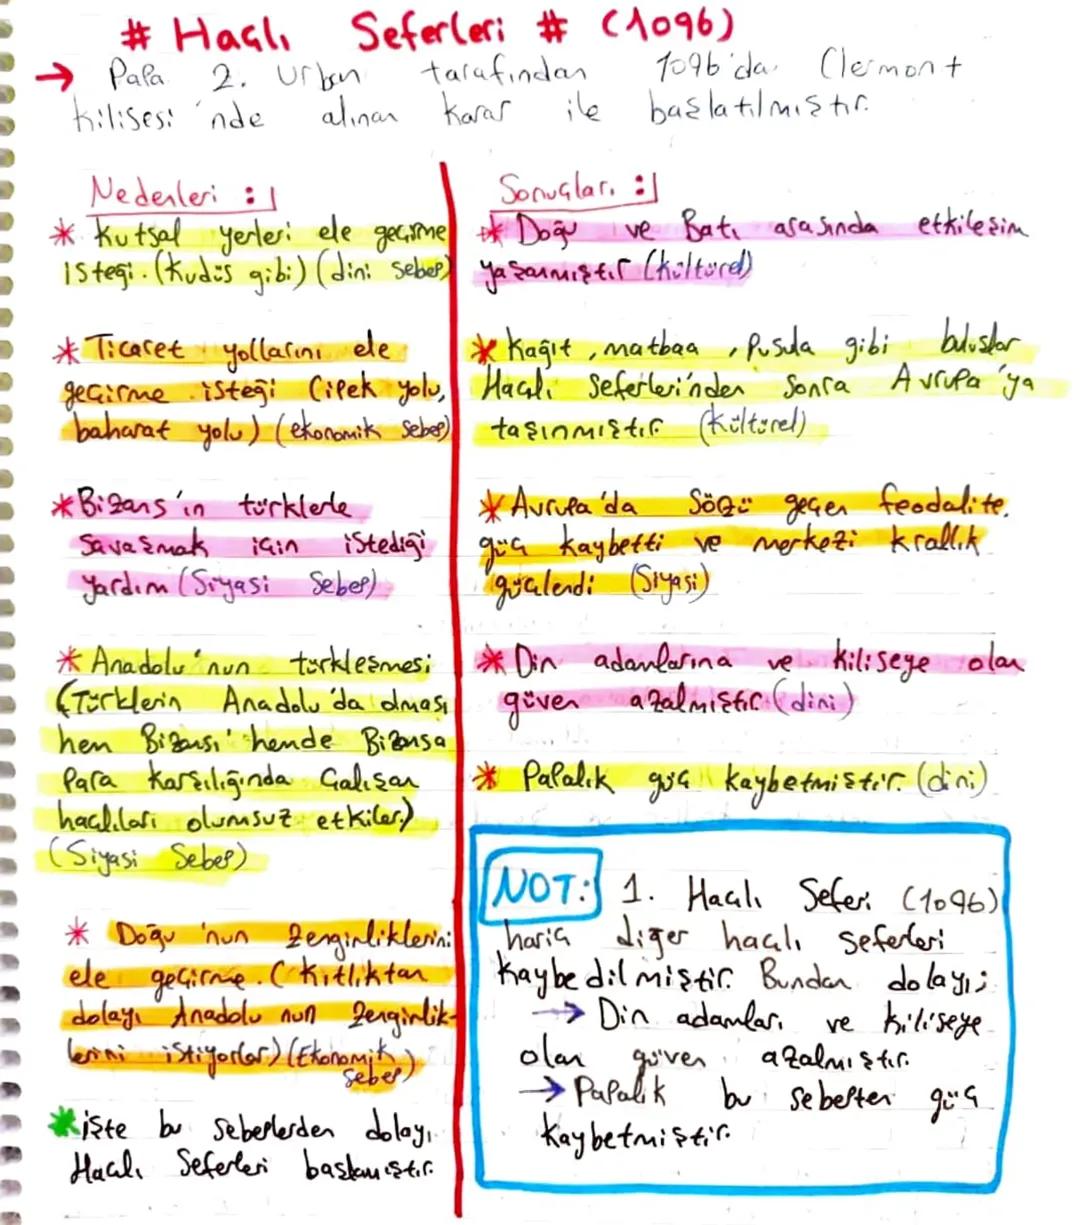 # Haçlı Seferleri # (1096)
→ Papa 2. Urban tarafından 1096'da Clermont
kilisesi'nde alınan karar ile başlatılmıştır.
Nedenleri :]
* Kutsal yerleri ele geçirme
isteği. (Kudüs gibi) (dini sebep)
* Ticaret yollarını ele
geçirme isteği (ipek yolu,
baharat yolu) (ekonomik sebep)
* Bizans'ın türklerle
savaşmak için istediği
yardım (Siyasi Sebep)
* Anadolu'nun türkleşmesi
(Türklerin Anadolu'da olması
hem Bizansı hemde Bizansa
Para karşılığında Çalışan
haçlıları olumsuz etkiler.)
(Siyasi Sebep)
* Doğu'nun Zenginliklerini
ele geçirme. (Kıtlıktan
dolayı Anadolu nun Zenginlik-
lerini istiyorlar) (Ekonomik
Sebep)
* işte bu sebeplerden dolayı
Haçlı Seferleri başlamıştır.
Sonuçları :]
* Doğu ve Batı arasında etkileşim
yaşanmıştır (kültürel)
* Kağıt, matbaa, Pusula gibi buluşlar
Haçlı Seferleri'nden Sonra Avrupa'ya
taşınmıştır. (Kültürel)
* Avrupa'da Sözü geçen feodalite,
güç kaybetti ve merkezi krallık
güçlendi (Siyasi)
* Din adamlarına ve kiliseye olan
güven azalmıştır. (dini)
* Papalık güç kaybetmiştir. (dini)
NOT: 1. Haçlı Seferi (1096)
hariç diğer haçlı seferleri
kaybedilmiştir. Bundan dolayı;
→ Din adamları ve kiliseye
olan güven azalmıştır.
→ Papalık bu sebepten güç
kaybetmiştir.